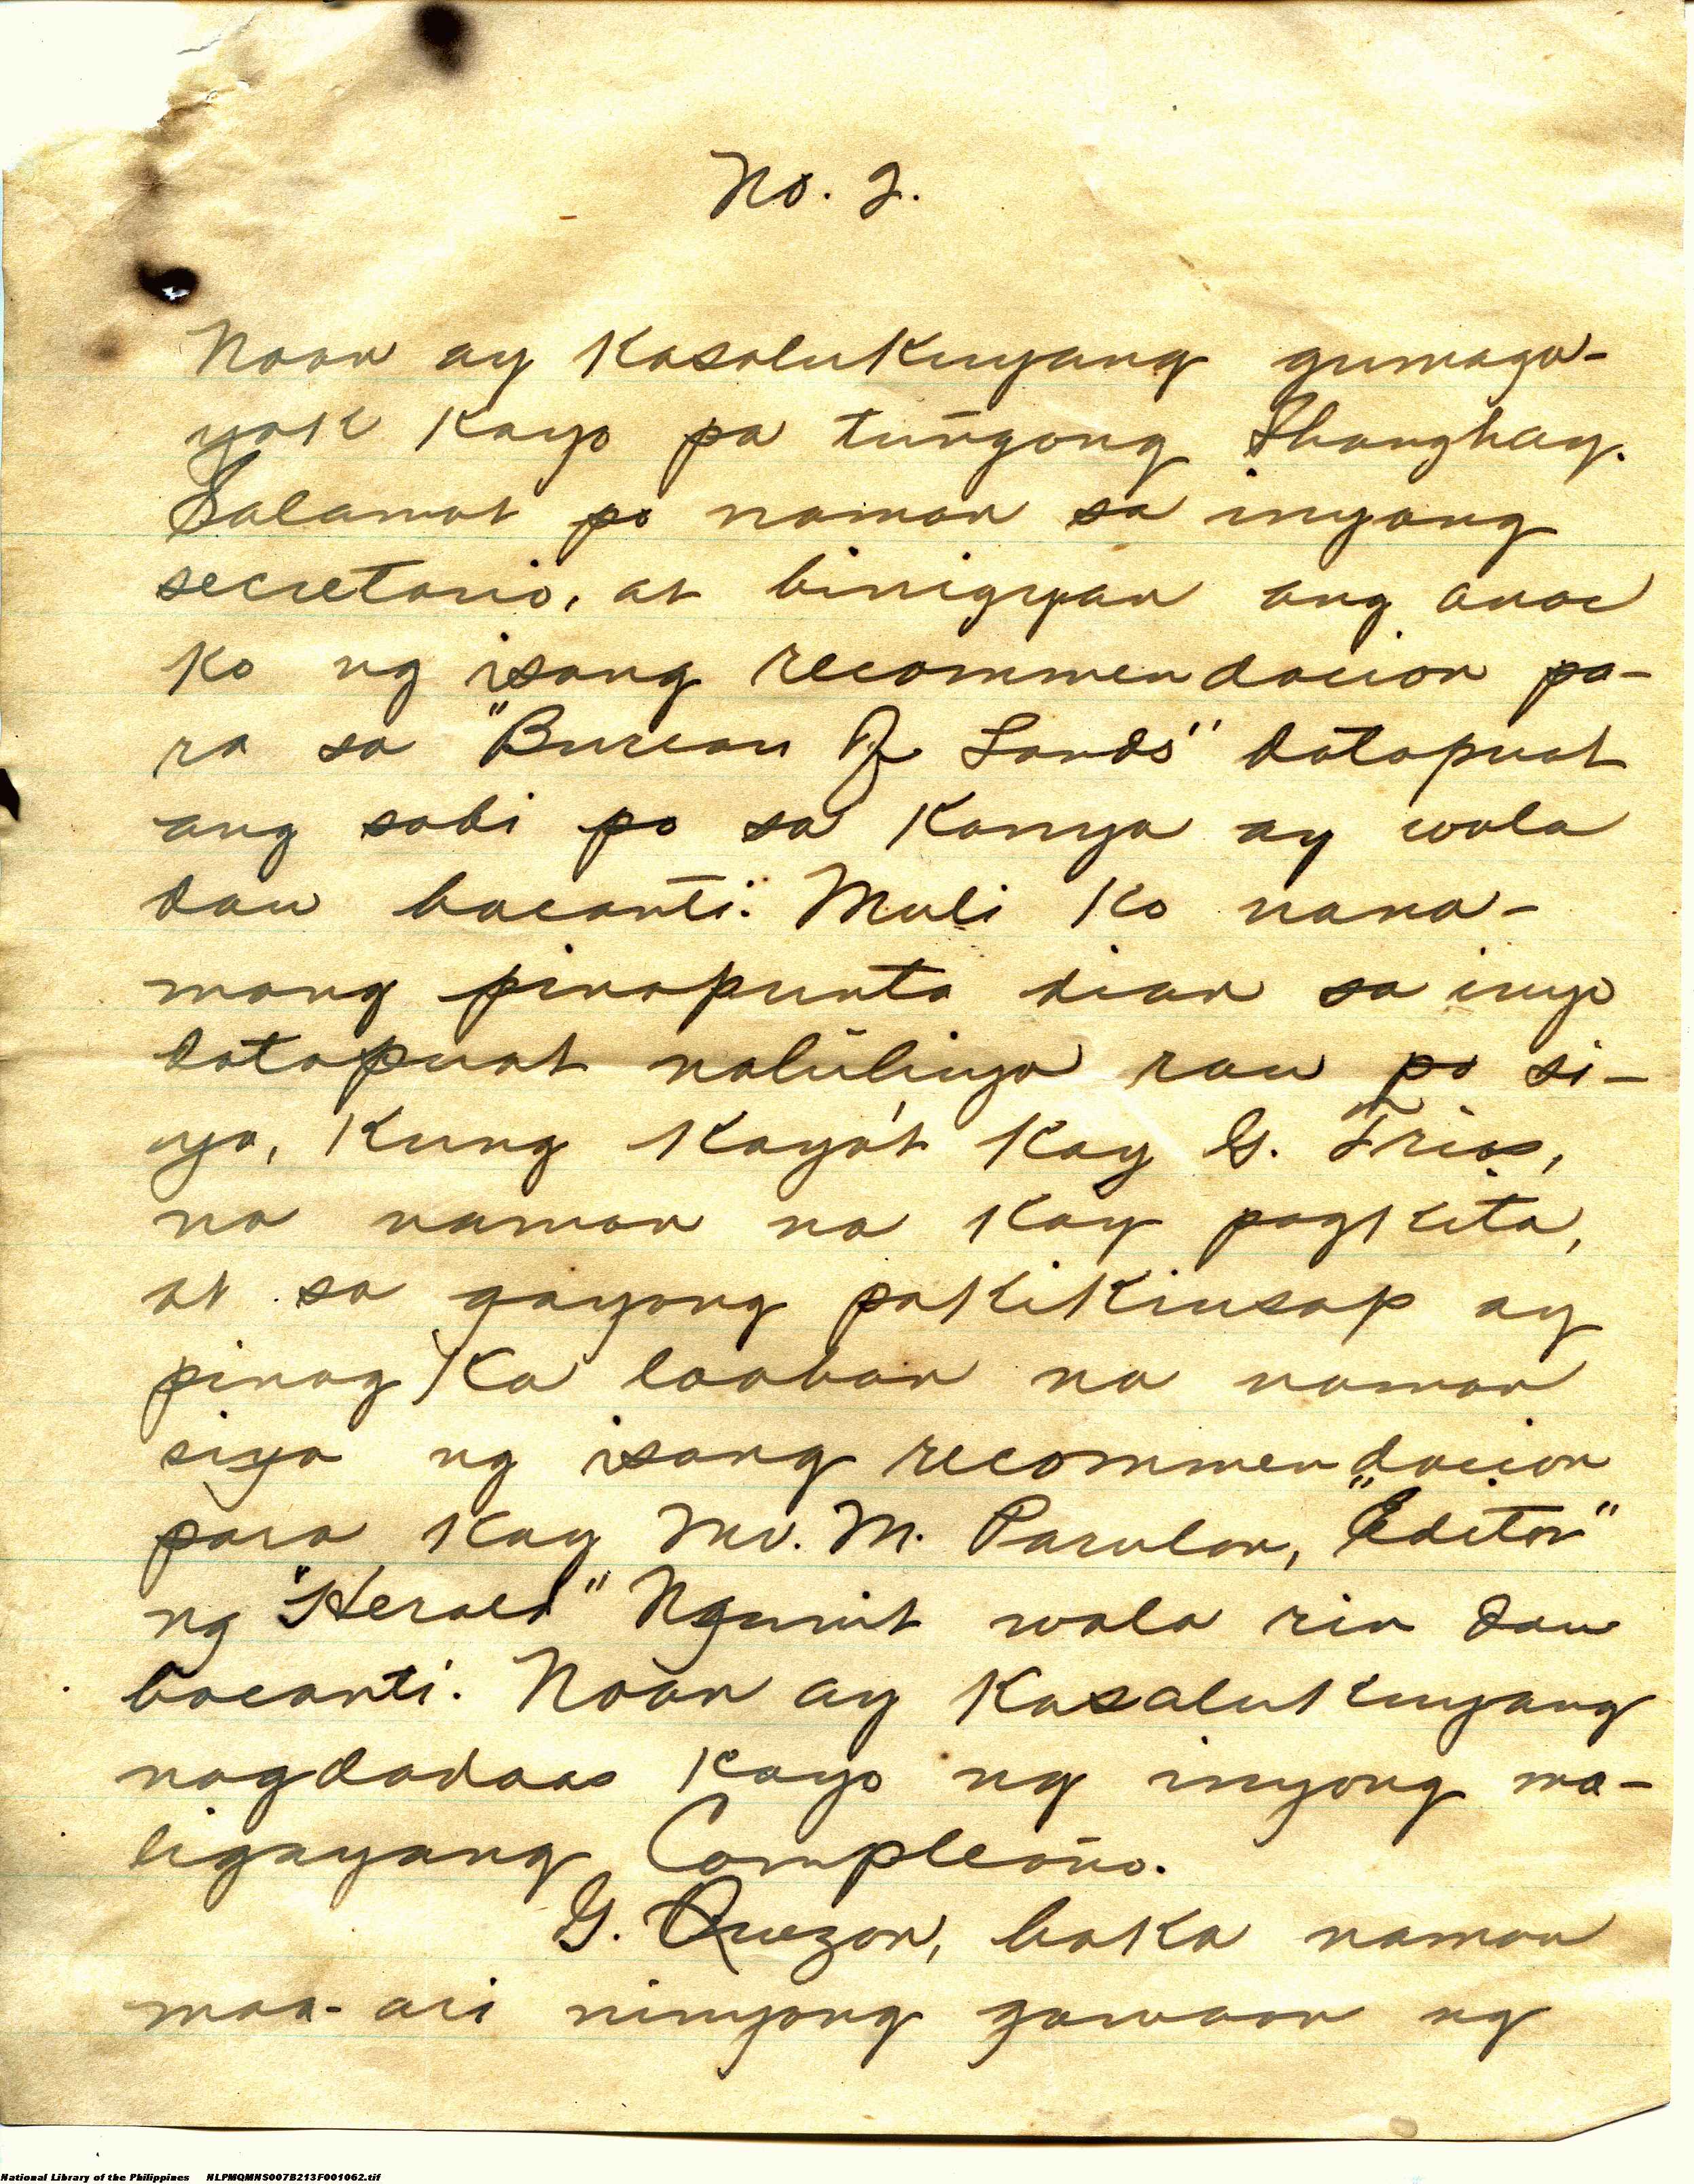 No. 2.
Noon ay kasalukuyang gumaga-
yak kayo pa tuñgong Shanghay.
Salamat po naman sa inyong
secretario, at binigyan ang anac
ko ng isang recommendacion pa-
ra sa "Bureau of Lands" datapuat
ang sabi po sa kanya ay wala
dau bacanti. Muli ko nana-
mang pinapunta dian sa inyo
datapuat nalulinya rau po si-
ya, kung kaya't kay G. Trias,
na naman na kay pagkita,
at sa gayong pakikiusap ay
pinag ka looban na naman
siya ng isang recommendacion
para kay Mr. M. Parulan, "Editor"
ng "Herald" Ngunit wala rin dau
bacanti. Noon ay kasalukuyang
nagdadaos kayo ng inyong ma-
ligayang Compleaño.
G. Quezon, baka naman
maa-ari ninyong gawaan ng
National Library of the Philippines NLPMQMNS007B213F001062.tif